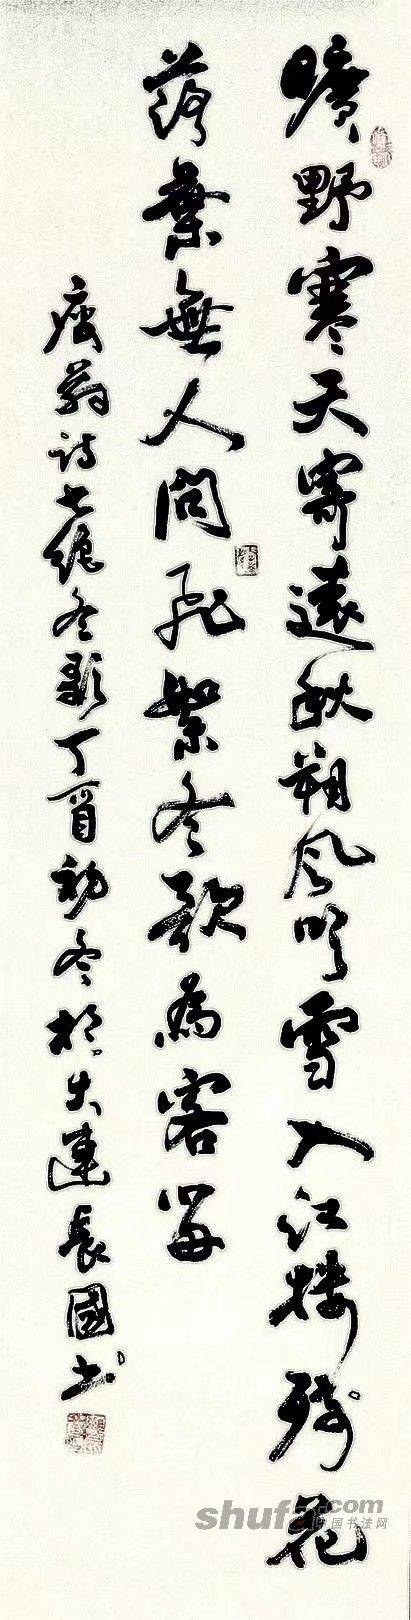 曠野寒天寄遠秋朔風吹雪入江樓殘花
落葉無人問飛絮冬歌為客留
翁诗七绝冬歌丁酉初冬於大連長國书
shufa.com
中国书法网